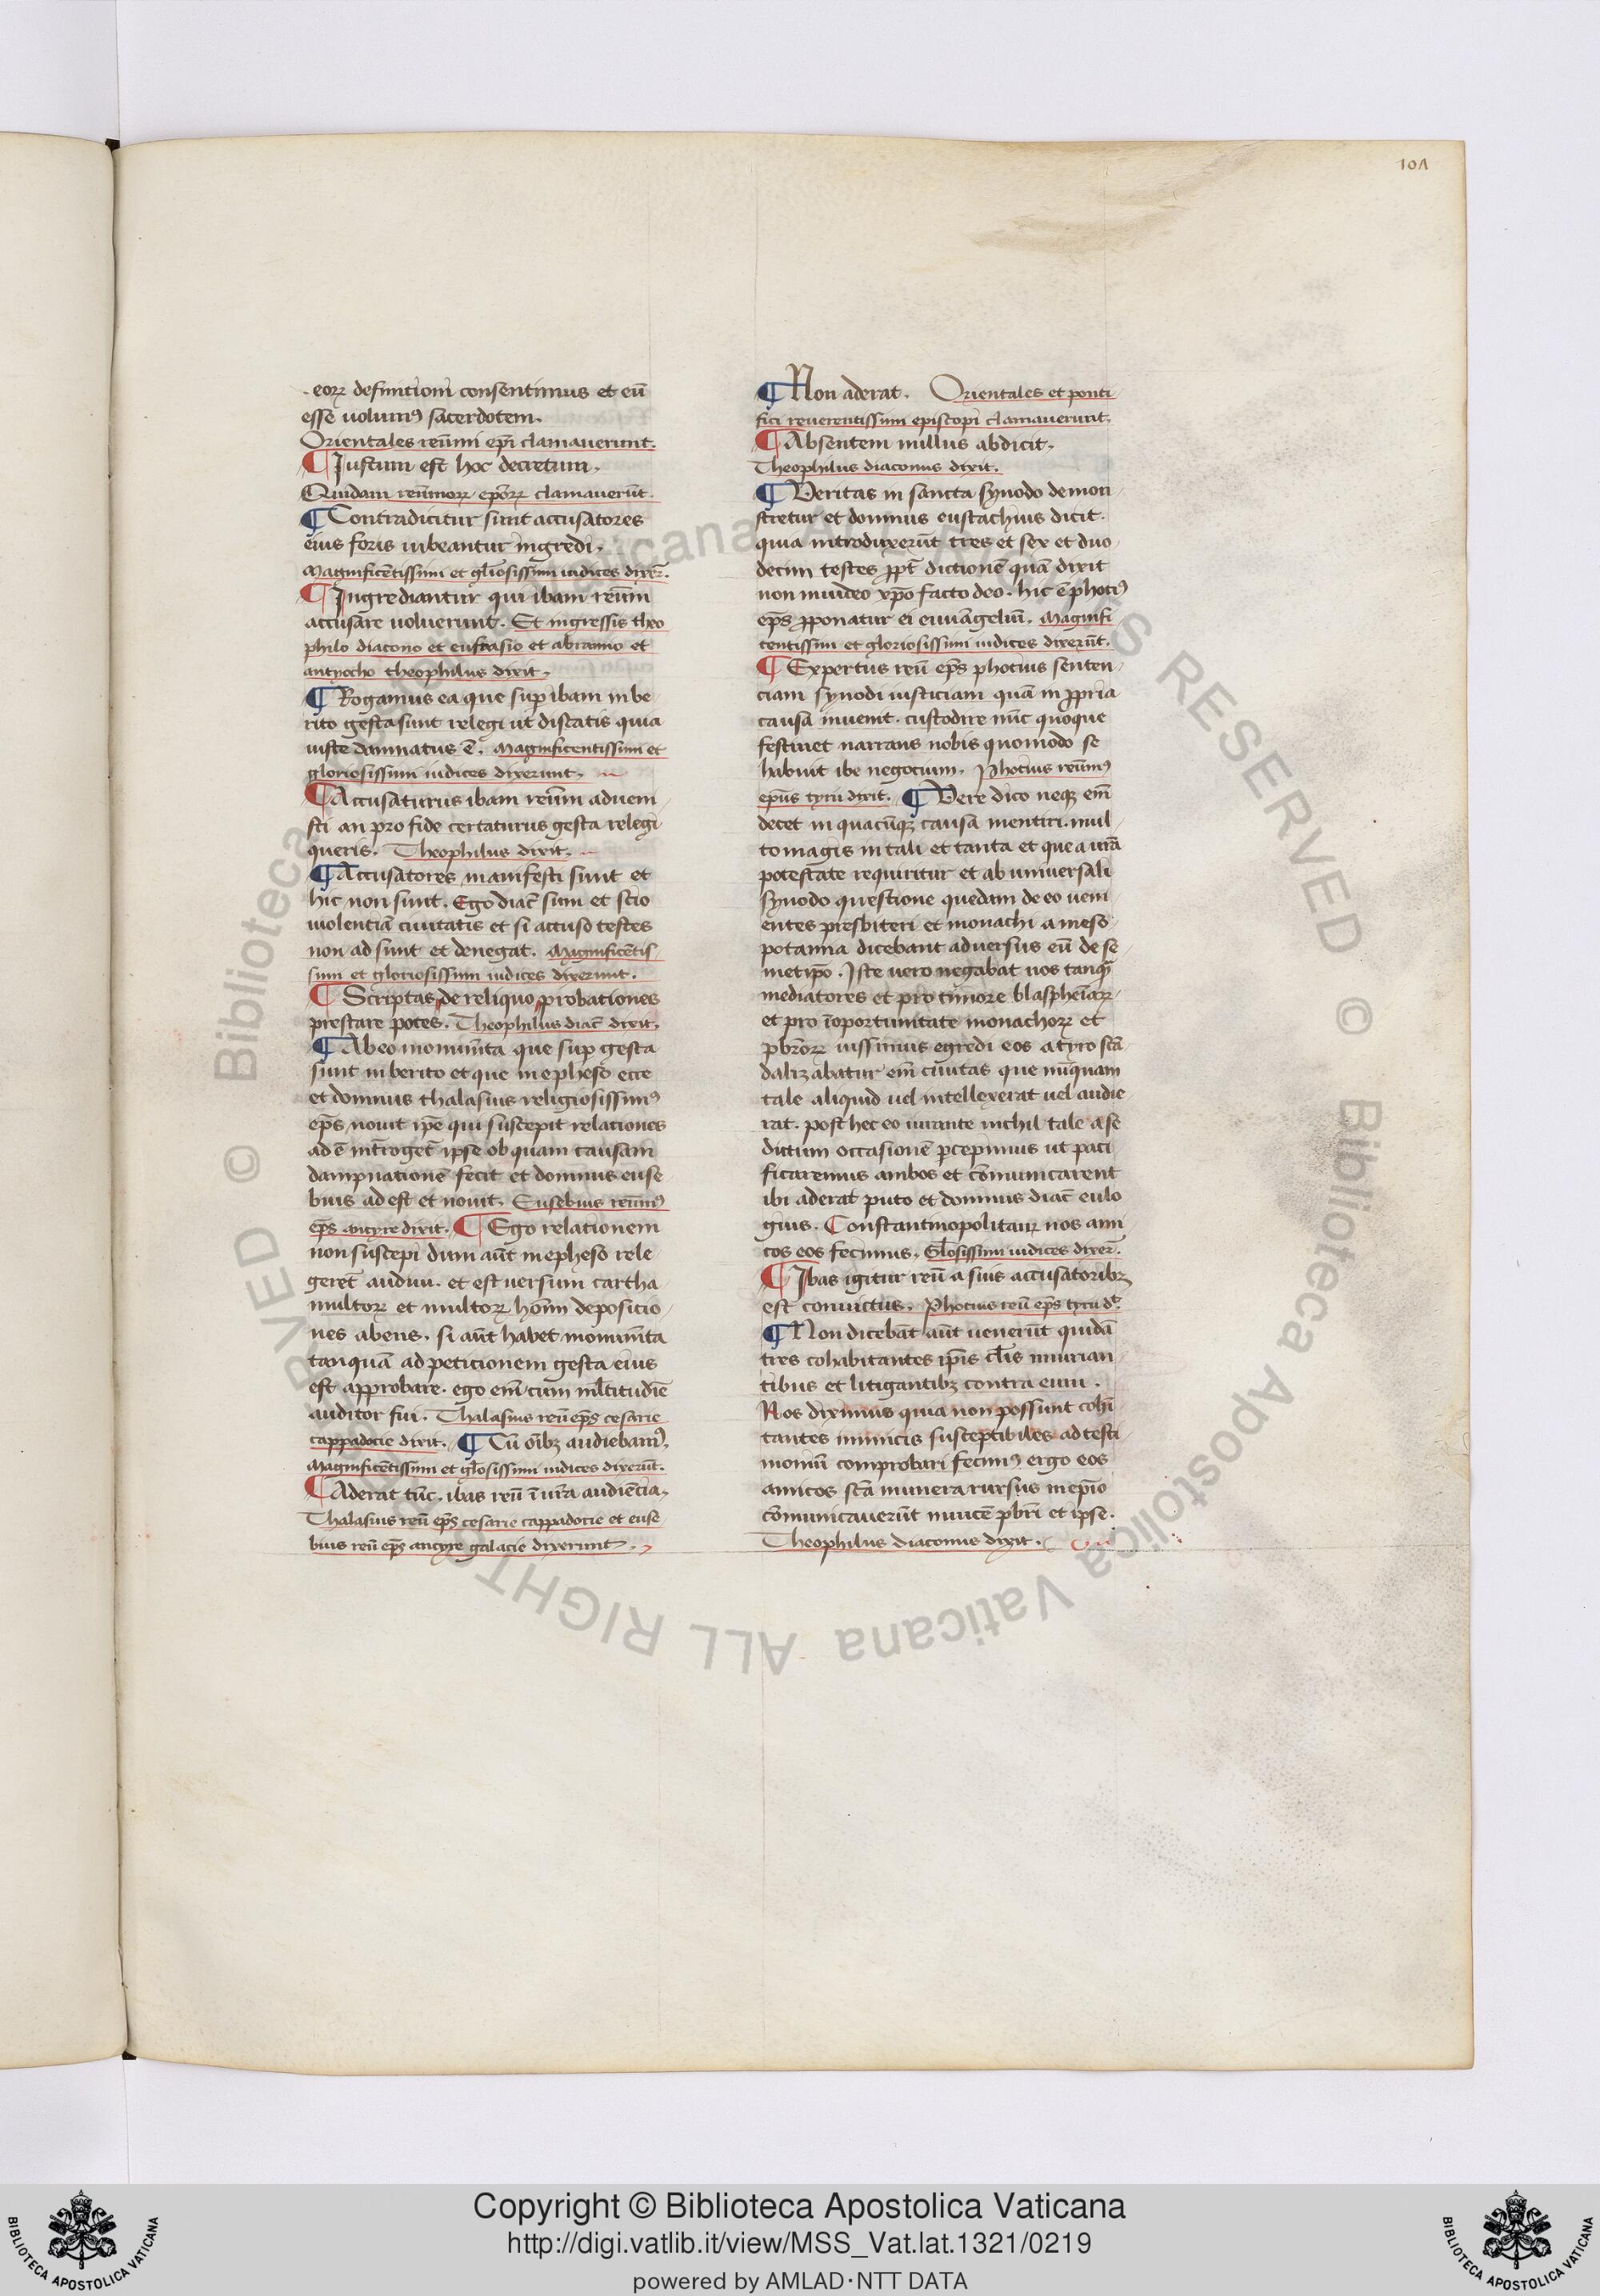 101
eorꝝ definitioni consentimus et eū
esse uolumꝰ sacerdotem.
Orientales reūmi ep̄i clamauerunt.
¶ Justum est hoc decretum.
Quidam reūmorꝝ ep̄orꝝ clamauerūt.
¶ Contradicitur sunt accusatores
eius foris iubeantur ingredi.
Magnificētissimi et gl̄iosissimi iudices dixer̄.
¶ Ingrediantur qui ibam reūm
accusare uoluerunt. Et ingressis theo
philo diacono et eufrasio et abramio et
antyocho theophilus dixit.
¶ Rogamus ea que suꝑ ibam in be
rito gesta sunt relegi ut discatis quia
iuste damnatus ē. Magnificentissimi et
gloriosissimi iudices dixerunt.
¶ Accusaturus ibam reūm adueni
sti an pro fide certaturus gesta relegi
queris. Theophilus dixit.
¶ Accusatores manifesti sunt et
hic non sunt. Ego diac̄ sum et scio
uiolentiā ciuitatis et si accuso testes
non ad sunt et denegat. Magnificētis
simi et gloriosissimi iudices dixerunt.
¶ Scriptas de reliquo probationes
prestare potes. Theophilus diac̄ dixit.
¶ Abeo monumīta que suꝑ gesta
sunt in berito et que in epheso ecce
et domnus thalasius religiosissimꝰ
ep̄s nouit ip̄e qui suscepit relationes
ad ē int̄roget̄ ipse ob quam causam
dampnationē fecit et domnus euse
bius ad est et nouit. Eusebius reūmꝰ
ep̄s ancyre dixit. ¶ Ego relationem
non suscepi dum aūt in epheso rele
geret̄ audiui. et est uersum cartha
multorꝝ et multorꝝ hoīm deposicio
nes abens. si aūt habet monumīta
tanquā ad peticionem gesta eius
est approbare. ego em̄ cum ml̄titudīe
auditor fui. Thalasius reū ep̄s cesarie
cappadocie dixit. ¶ Cū oībꝫ audiebamꝰ.
Magnificētissimi et gl̄osissimi iudices dixerūt.
¶ Aderat tūc. ibas reū ī ur̄a audiēcia.
Thalasius reū ep̄s cesarie cappadocie et euse
bius reū ep̄s ancyre galacie dixerunt.
¶ Non aderat. Orientales et ponti
fici reuerentissimi episcopi clamauerunt.
¶ Absentem nullus abdicit.
Theophilus diaconus dixit.
¶ Veritas in sancta synodo demon
stretur et domnus eustachius dicit.
quia introduxerūt tres et sex et duo
decim testes ꝓpt̄ dictionē quā dixit
non inuideo xp̄o facto deo. hic ē photiꝰ
ep̄s ꝓponatur ei euuāgeliū. Magnifi
centissimi et gloriosissimi iudices dixerūt.
¶ Expertus reū ep̄s photius senten
ciam synodi iusticiam quā in ꝓpria
causā inuenit. custodire nūc quoque
festinet narrans nobis quomodo se
habuit ibe negocium. Photius reūmꝰ
ep̄us tyrii dixit. ¶ Vere dico neqꝫ em̄
decet in quacūqꝫ causā mentiri. mul
to magis in tali et tanta et que a ur̄ā
potestate requiritur et ab uniuersali
synodo questione quedam de eo ueni
entes presbiteri et monachi a meso
potamia dicebant aduersus eū de se
metip̄o. Iste uero negabat nos tanqꝫ̄
mediatores et pro timore blasphemiarꝝ
et pro īoportunitate monachorꝝ et
pb̄rorꝝ iussimus egredi eos a tyro scā
dalizabatur em̄ ciuitas que nūquam
tale aliquid uel intellexerat uel audie
rat. post hec eo iurante nichil tale a se
dictum occasionē ꝑcepimus ut paci
ficaremus ambos et cōmunicarent
ibi aderat puto et domnus diac̄ eulo
gius. Constantinopolitanꝝ nos ami
cos eos fecimus. Gl̄osissimi iudices dixer̄.
¶ Ibas igitur reū a suis accusatoribꝫ
est conuictus. Photius reū ep̄s tyrii dt̄.
¶ Non dicebāt aūt uenerūt quidā
tres cohabitantes ip̄is cl̄is iniurian
tibus et litigantibꝫ contra eum.
Nos diximus quia non possunt cohī
tantes inimicis susceptibiles ad testi
moniū comprobari fecimꝰ ergo eos
amicos sc̄a munera rursus in ep̄io
cōmunicauerūt inuicē pb̄ri et ipse.
Theophilus diaconus dixit.
© Biblioteca Apostolica Vaticana ALL RIGHTS RESERVED © Biblioteca Apostolica Vaticana ALL RIGHTS RESERVED
BIBLIOTECA APOSTOLICA VATICANA
Copyright © Biblioteca Apostolica Vaticana
http://digi.vatlib.it/view/MSS_Vat.lat.1321/0219
powered by AMLAD·NTT DATA
BIBLIOTECA APOSTOLICA VATICANA